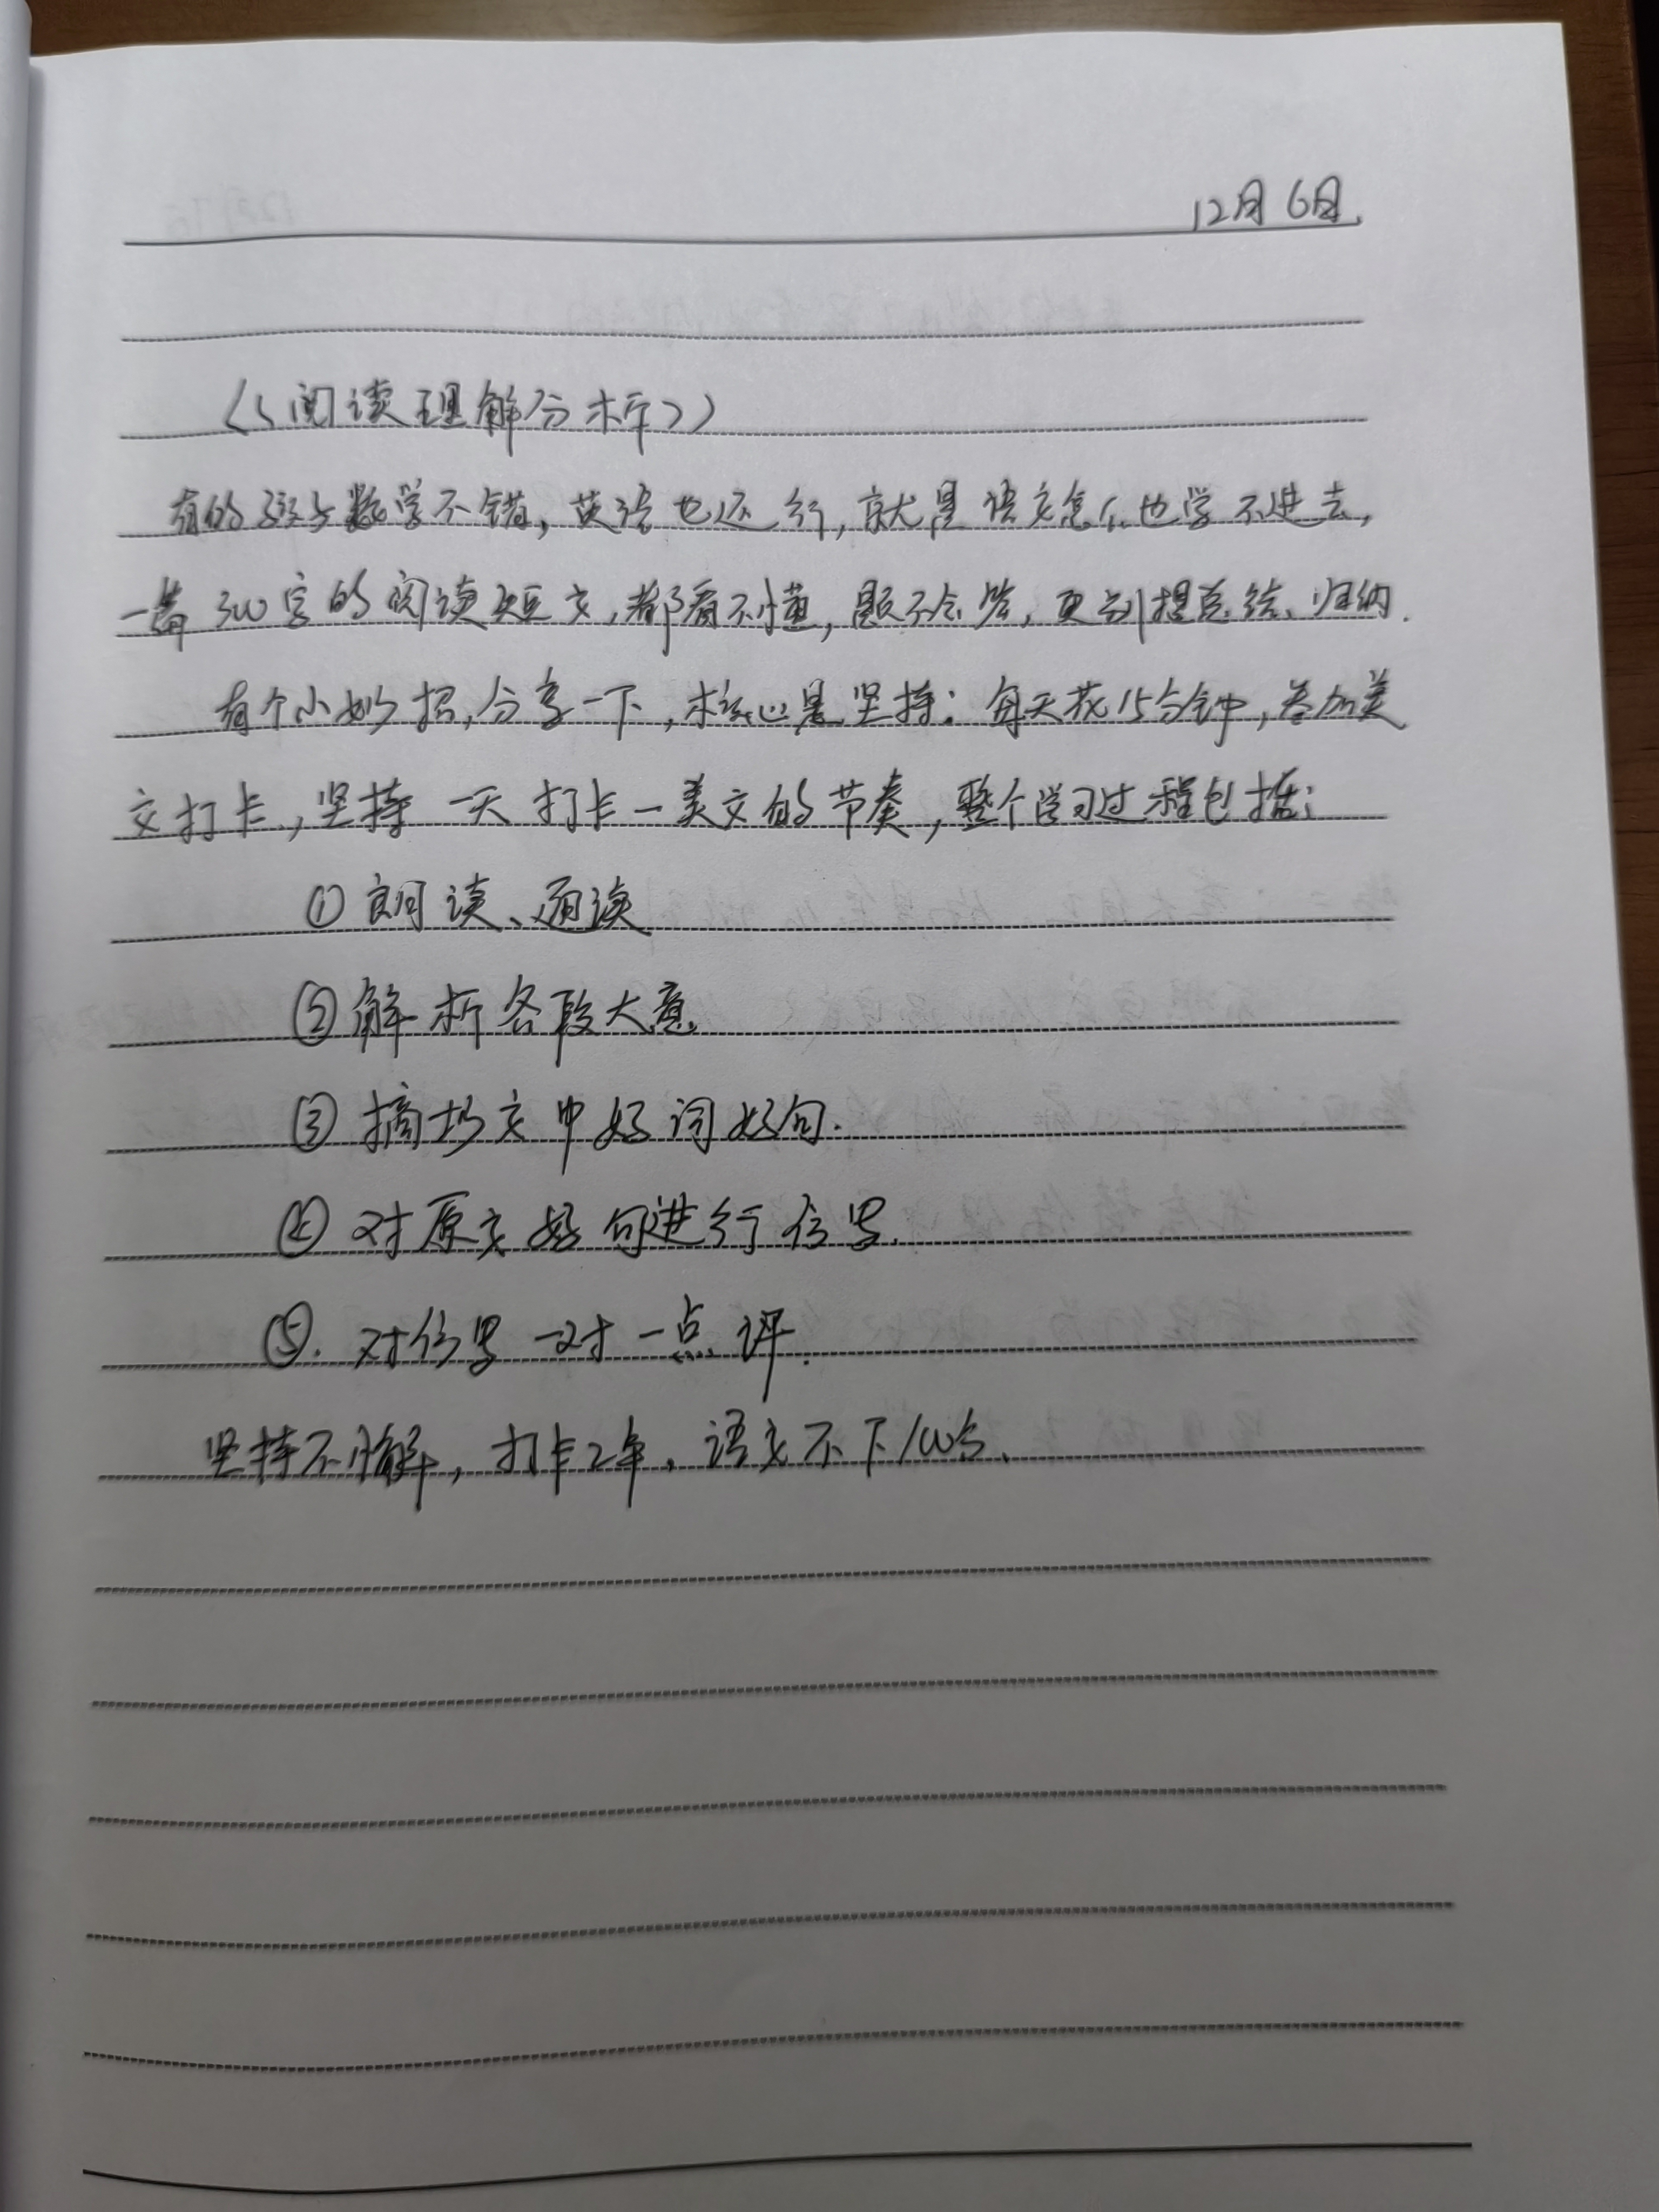 12月6日.
《阅读理解分析》
有的孩子数学不错,英语也还行,就是语文怎么也学不进去,
一篇300字的阅读短文,都看不懂,题不会答,更别提总结、归纳.
有个小妙招,分享一下,核心是坚持:每天花15分钟,参加美
文打卡,坚持一天打卡一美文的节奏,整个学习过程包括:
①朗读、通读
②解析各段大意
③摘抄文中好词好句.
④对原文好句进行仿写.
⑤.对仿写一对一点评.
坚持不懈,打卡2年,语文不下100分、